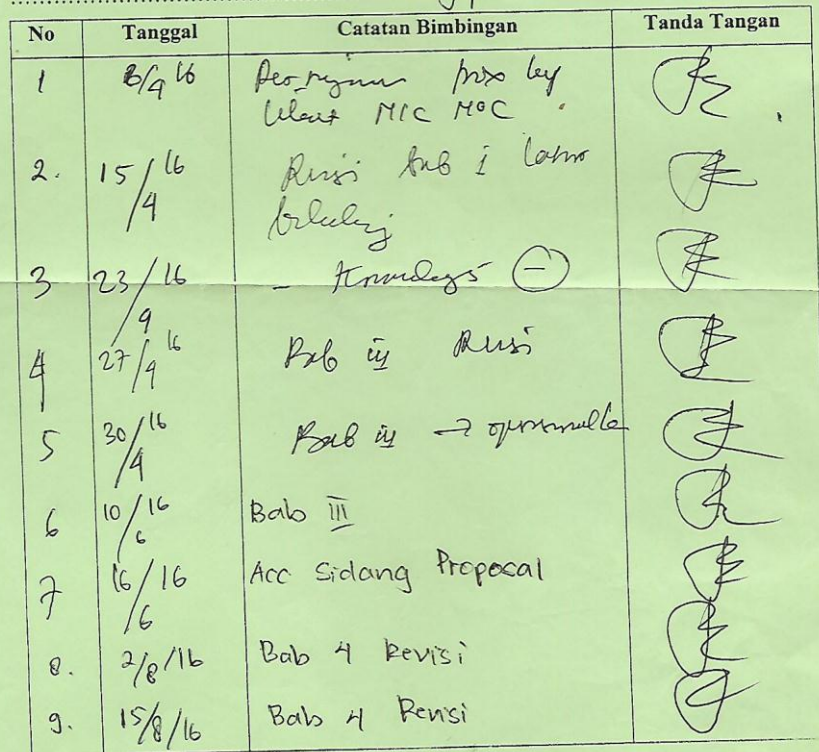 No Tanggal Catatan Bimbingan Tanda Tangan
1 8/4 16
MIC MOC
2. 15/4 16 Revisi bab I latar
belakang
3 23/4 16 -
4 27/4 16 Bab III Revisi
5 30/4 16 Bab III →
6 10/6 16 Bab III
7 16/6 16 Acc Sidang Proposal
8. 2/8/16 Bab 4 Revisi
9. 15/8/16 Bab 4 Revisi